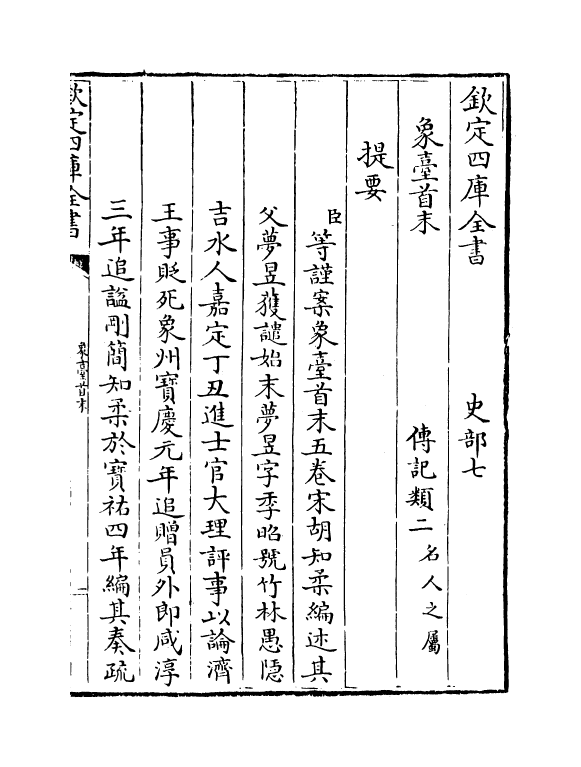 欽定四庫全書　史部七
象臺首末　傳記類二名人之屬
提要
臣等謹案象臺首末五卷宋胡知柔編述其
父夢昱獲譴始末夢昱字季昭號竹林愚隱
吉水人嘉定丁丑進士官大理評事以論濟
王事貶死象州寶慶元年追贈員外即咸淳
三年追諡剛簡知柔於寶祐四年編其奏疏
欽定四庫全書
象臺首末